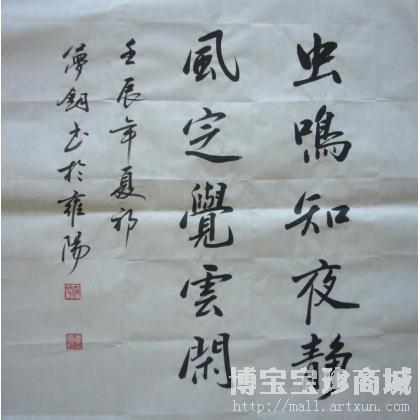 虫鳴知夜静
風定覺雲閑
壬辰年夏初
书於雍陽
博宝宝珍商城
http://mall.artxun.com